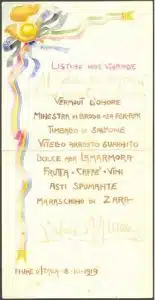 LISTINO DELLE VIVANDE
VERMOUT D'ONORE
MINESTRA IN BRODO
TIMBALLO DI SALMONE
VITELLO ARROSTO GUARNITO
DOLCE ALLA LAMARMORA
FRUTTA - CAFFÈ - VINI
ASTI SPUMANTE
MARASCHINO DI ZARA
FIUME D'ITALIA - 8 - XI - 1919